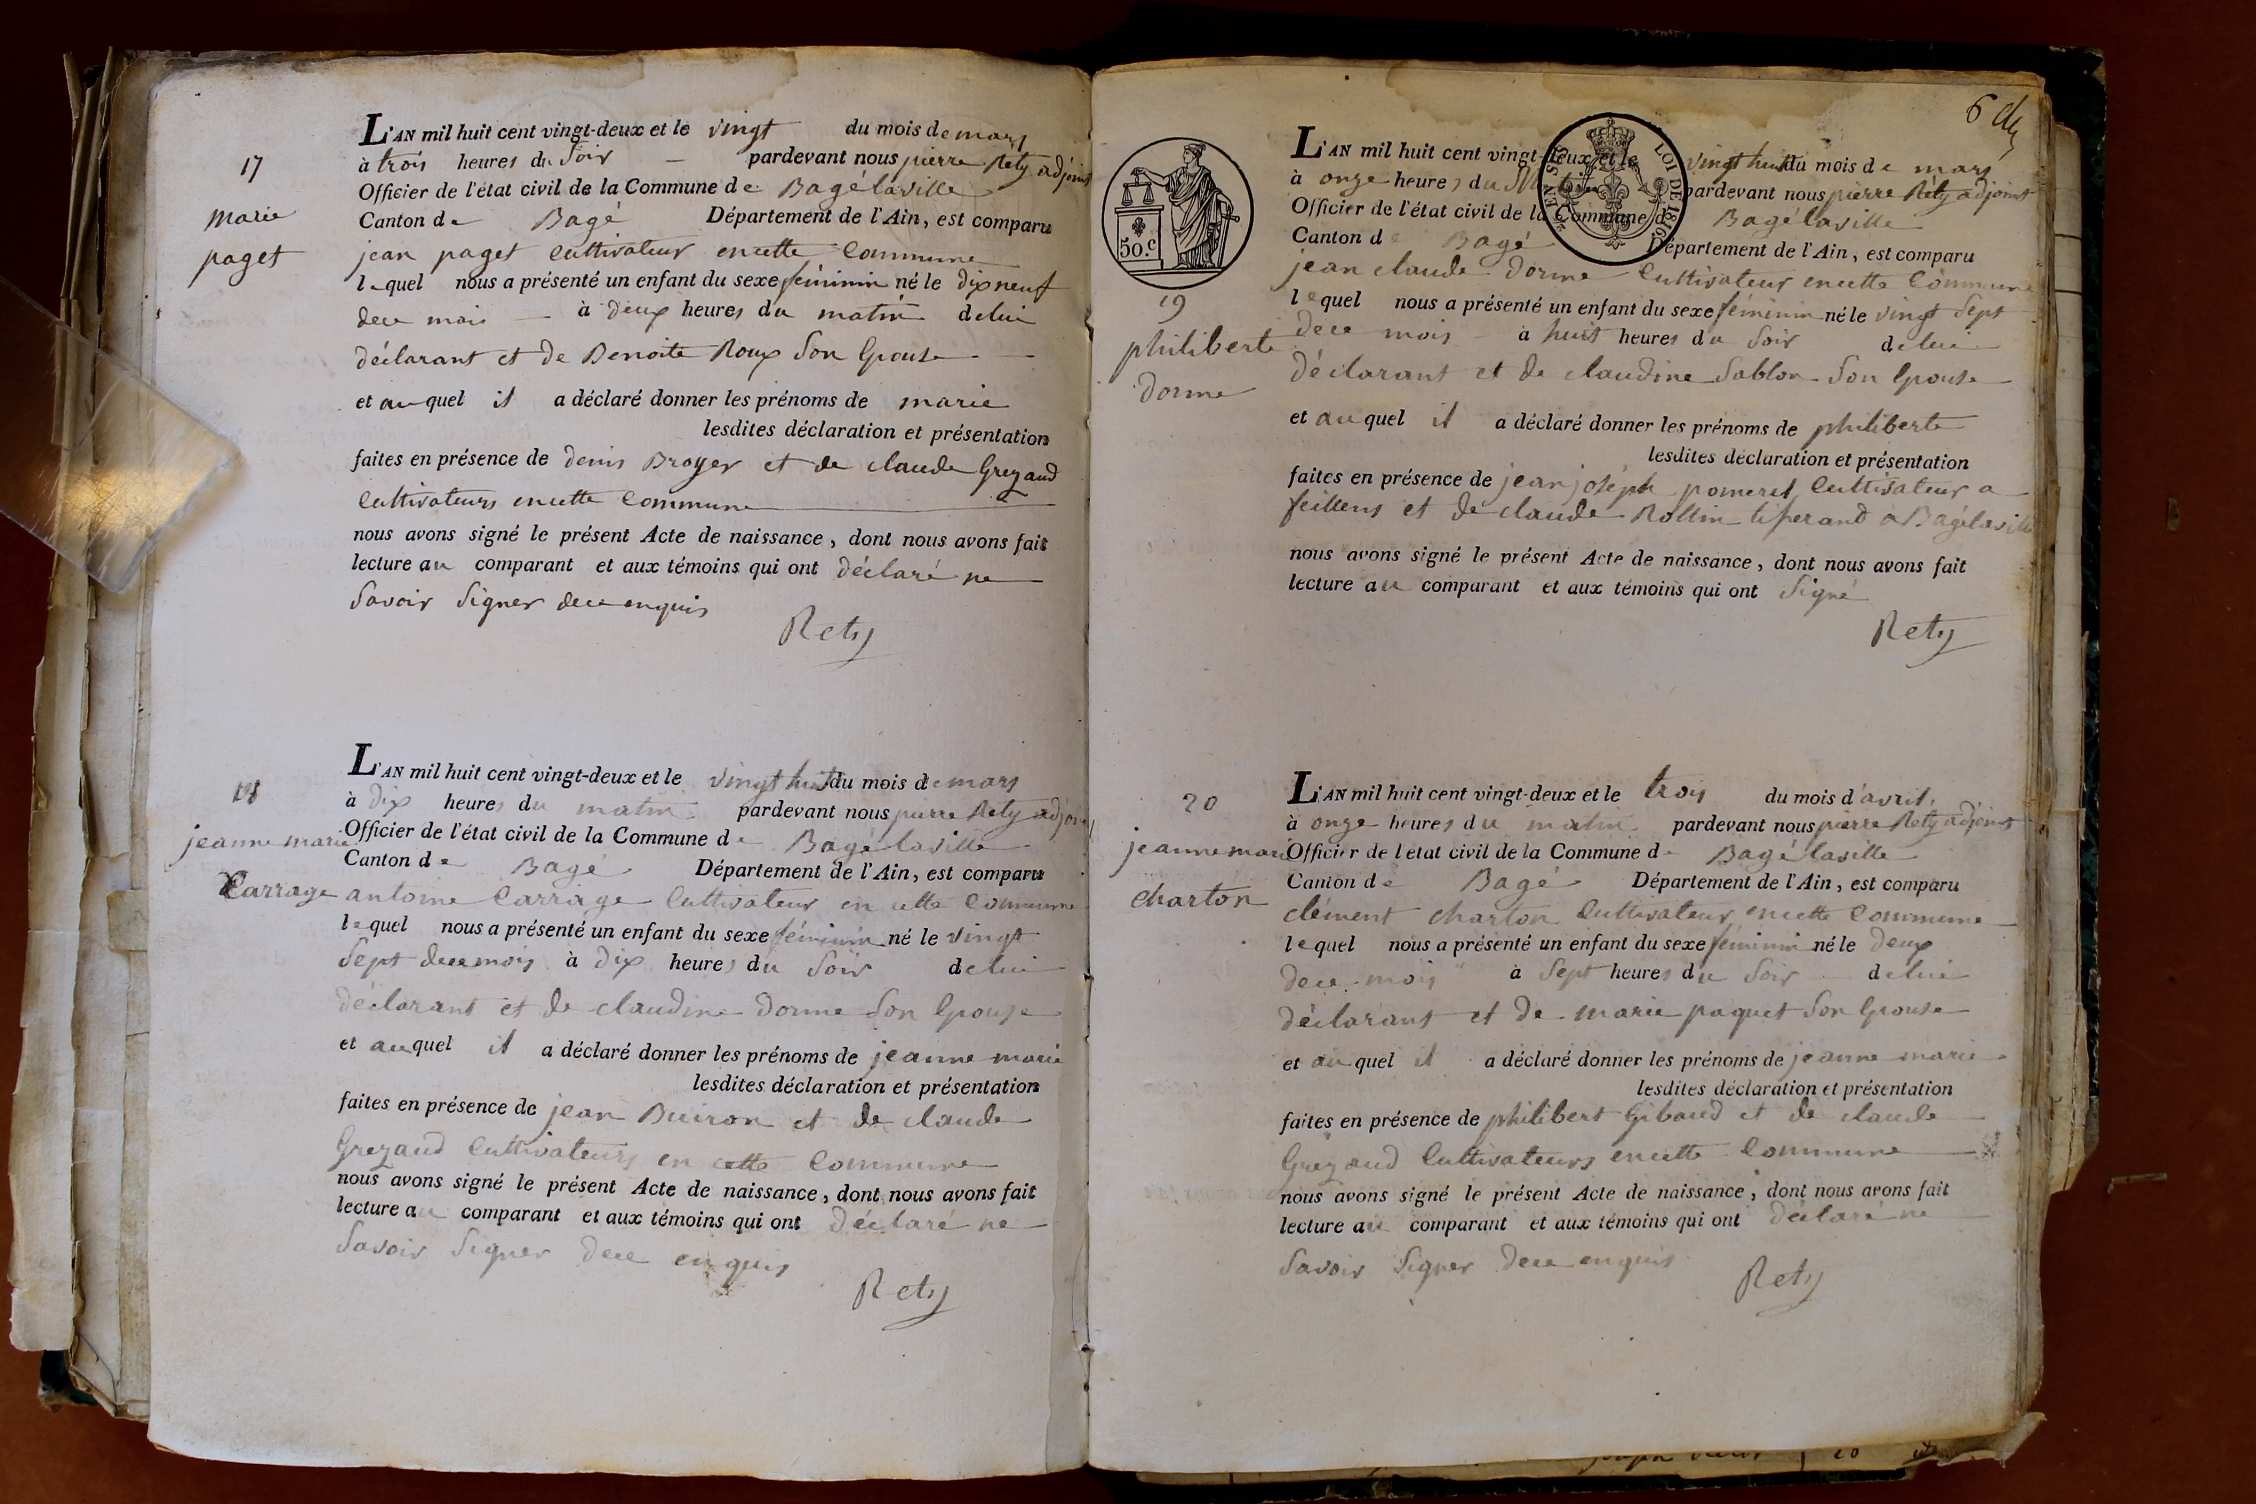 17
marie
paget
L'AN mil huit cent vingt-deux et le vingt du mois de mars
à trois heures du Soir — pardevant nous pierre Rety adjoint
Officier de l'état civil de la Commune de Bagé laville
Canton de Bagé Département de l'Ain, est comparu
jean paget Cultivateur encette Commune
lequel nous a présenté un enfant du sexe féminin né le dixneuf
dece mois — à deux heures du matin delui
déclarant et de Benoite Roux Son Epouse
et auquel il a déclaré donner les prénoms de marie
lesdites déclaration et présentation
faites en présence de denis Broyer et de claude Grezaud
Cultivateurs encette Commune
nous avons signé le présent Acte de naissance, dont nous avons fait
lecture au comparant et aux témoins qui ont déclaré ne
Savoir Signer dece enquis
Rety
18
jeanne marie
Carrage
L'AN mil huit cent vingt-deux et le vingt huit du mois de mars
à dix heures du matin pardevant nous pierre Rety adjoint
Officier de l'état civil de la Commune de Bagé laville
Canton de Bagé Département de l'Ain, est comparu
antoine Carrage Cultivateur en cette Commune
lequel nous a présenté un enfant du sexe féminin né le vingt
Sept dece mois à dix heures du Soir delui
déclarant et de claudine Dorme Son Epouse
et auquel il a déclaré donner les prénoms de jeanne marie
lesdites déclaration et présentation
faites en présence de jean Buiron et de claude
Grezaud Cultivateurs en cette Commune
nous avons signé le présent Acte de naissance, dont nous avons fait
lecture au comparant et aux témoins qui ont déclaré ne
Savoir Signer dece enquis
Rety
6
50.c
EN SUS LOI DE 1816
19
philiberte
dorme
L'AN mil huit cent vingt-deux et le vingt huit du mois de mars
à onze heures du Matin pardevant nous pierre Rety adjoint
Officier de l'état civil de la Commune d Bagé laville
Canton de Bagé Département de l'Ain, est comparu
jean claude Dorme Cultivateur encette Commune
lequel nous a présenté un enfant du sexe féminin né le vingt Sept
dece mois à huit heures du Soir delui
déclarant et de claudine Sablon Son Epouse
et auquel il a déclaré donner les prénoms de philiberte
lesdites déclaration et présentation
faites en présence de jean joséph pomerel Cultivateur a
feillens et de claude Rollin tiserand à Bagé laville
nous avons signé le présent Acte de naissance, dont nous avons fait
lecture au comparant et aux témoins qui ont Signé
Rety
20
jeanne marie
charton
L'AN mil huit cent vingt-deux et le trois du mois d'avril
à onze heures du matin pardevant nous pierre Rety adjoint
Officier de l'état civil de la Commune d Bagé laville
Canton de Bagé Département de l'Ain, est comparu
clément charton Cultivateur encette Commune
lequel nous a présenté un enfant du sexe féminin né le deux
dece mois à Sept heures du Soir delui
déclarant et de marie paquet Son Epouse
et auquel il a déclaré donner les prénoms de jeanne marie
lesdites déclaration et présentation
faites en présence de philibert Giboud et de claude
Grezaud Cultivateurs encette Commune
nous avons signé le présent Acte de naissance, dont nous avons fait
lecture au comparant et aux témoins qui ont déclaré ne
Savoir Signer dece enquis
Rety